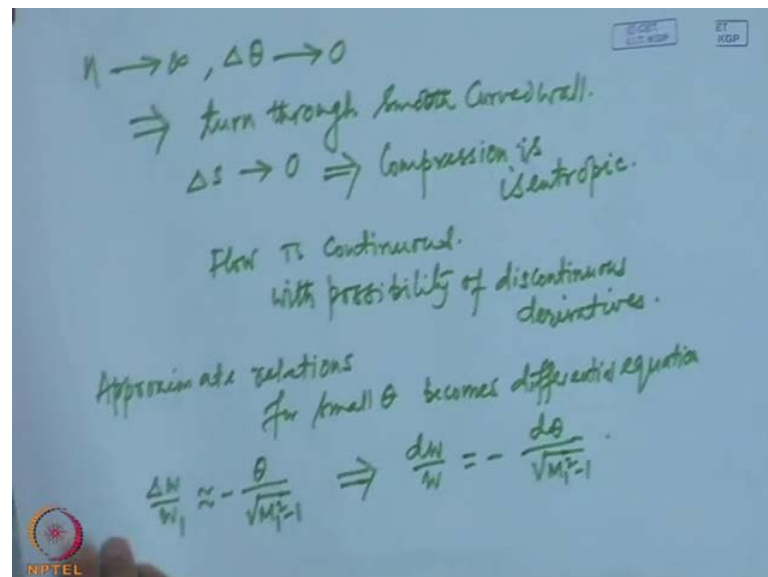 n → ∞, Δθ → 0
⇒ turn through smooth curved wall.
Δs → 0 ⇒ Compression is
isentropic.
Flow is continuous.
with possibility of discontinuous
derivatives.
Approximate relations
for small θ becomes differential equation
Δw/w₁ ≈ - θ/√(M₁²-1) ⇒ dw/w = - dθ/√(M₁²-1).
KGP
NPTEL